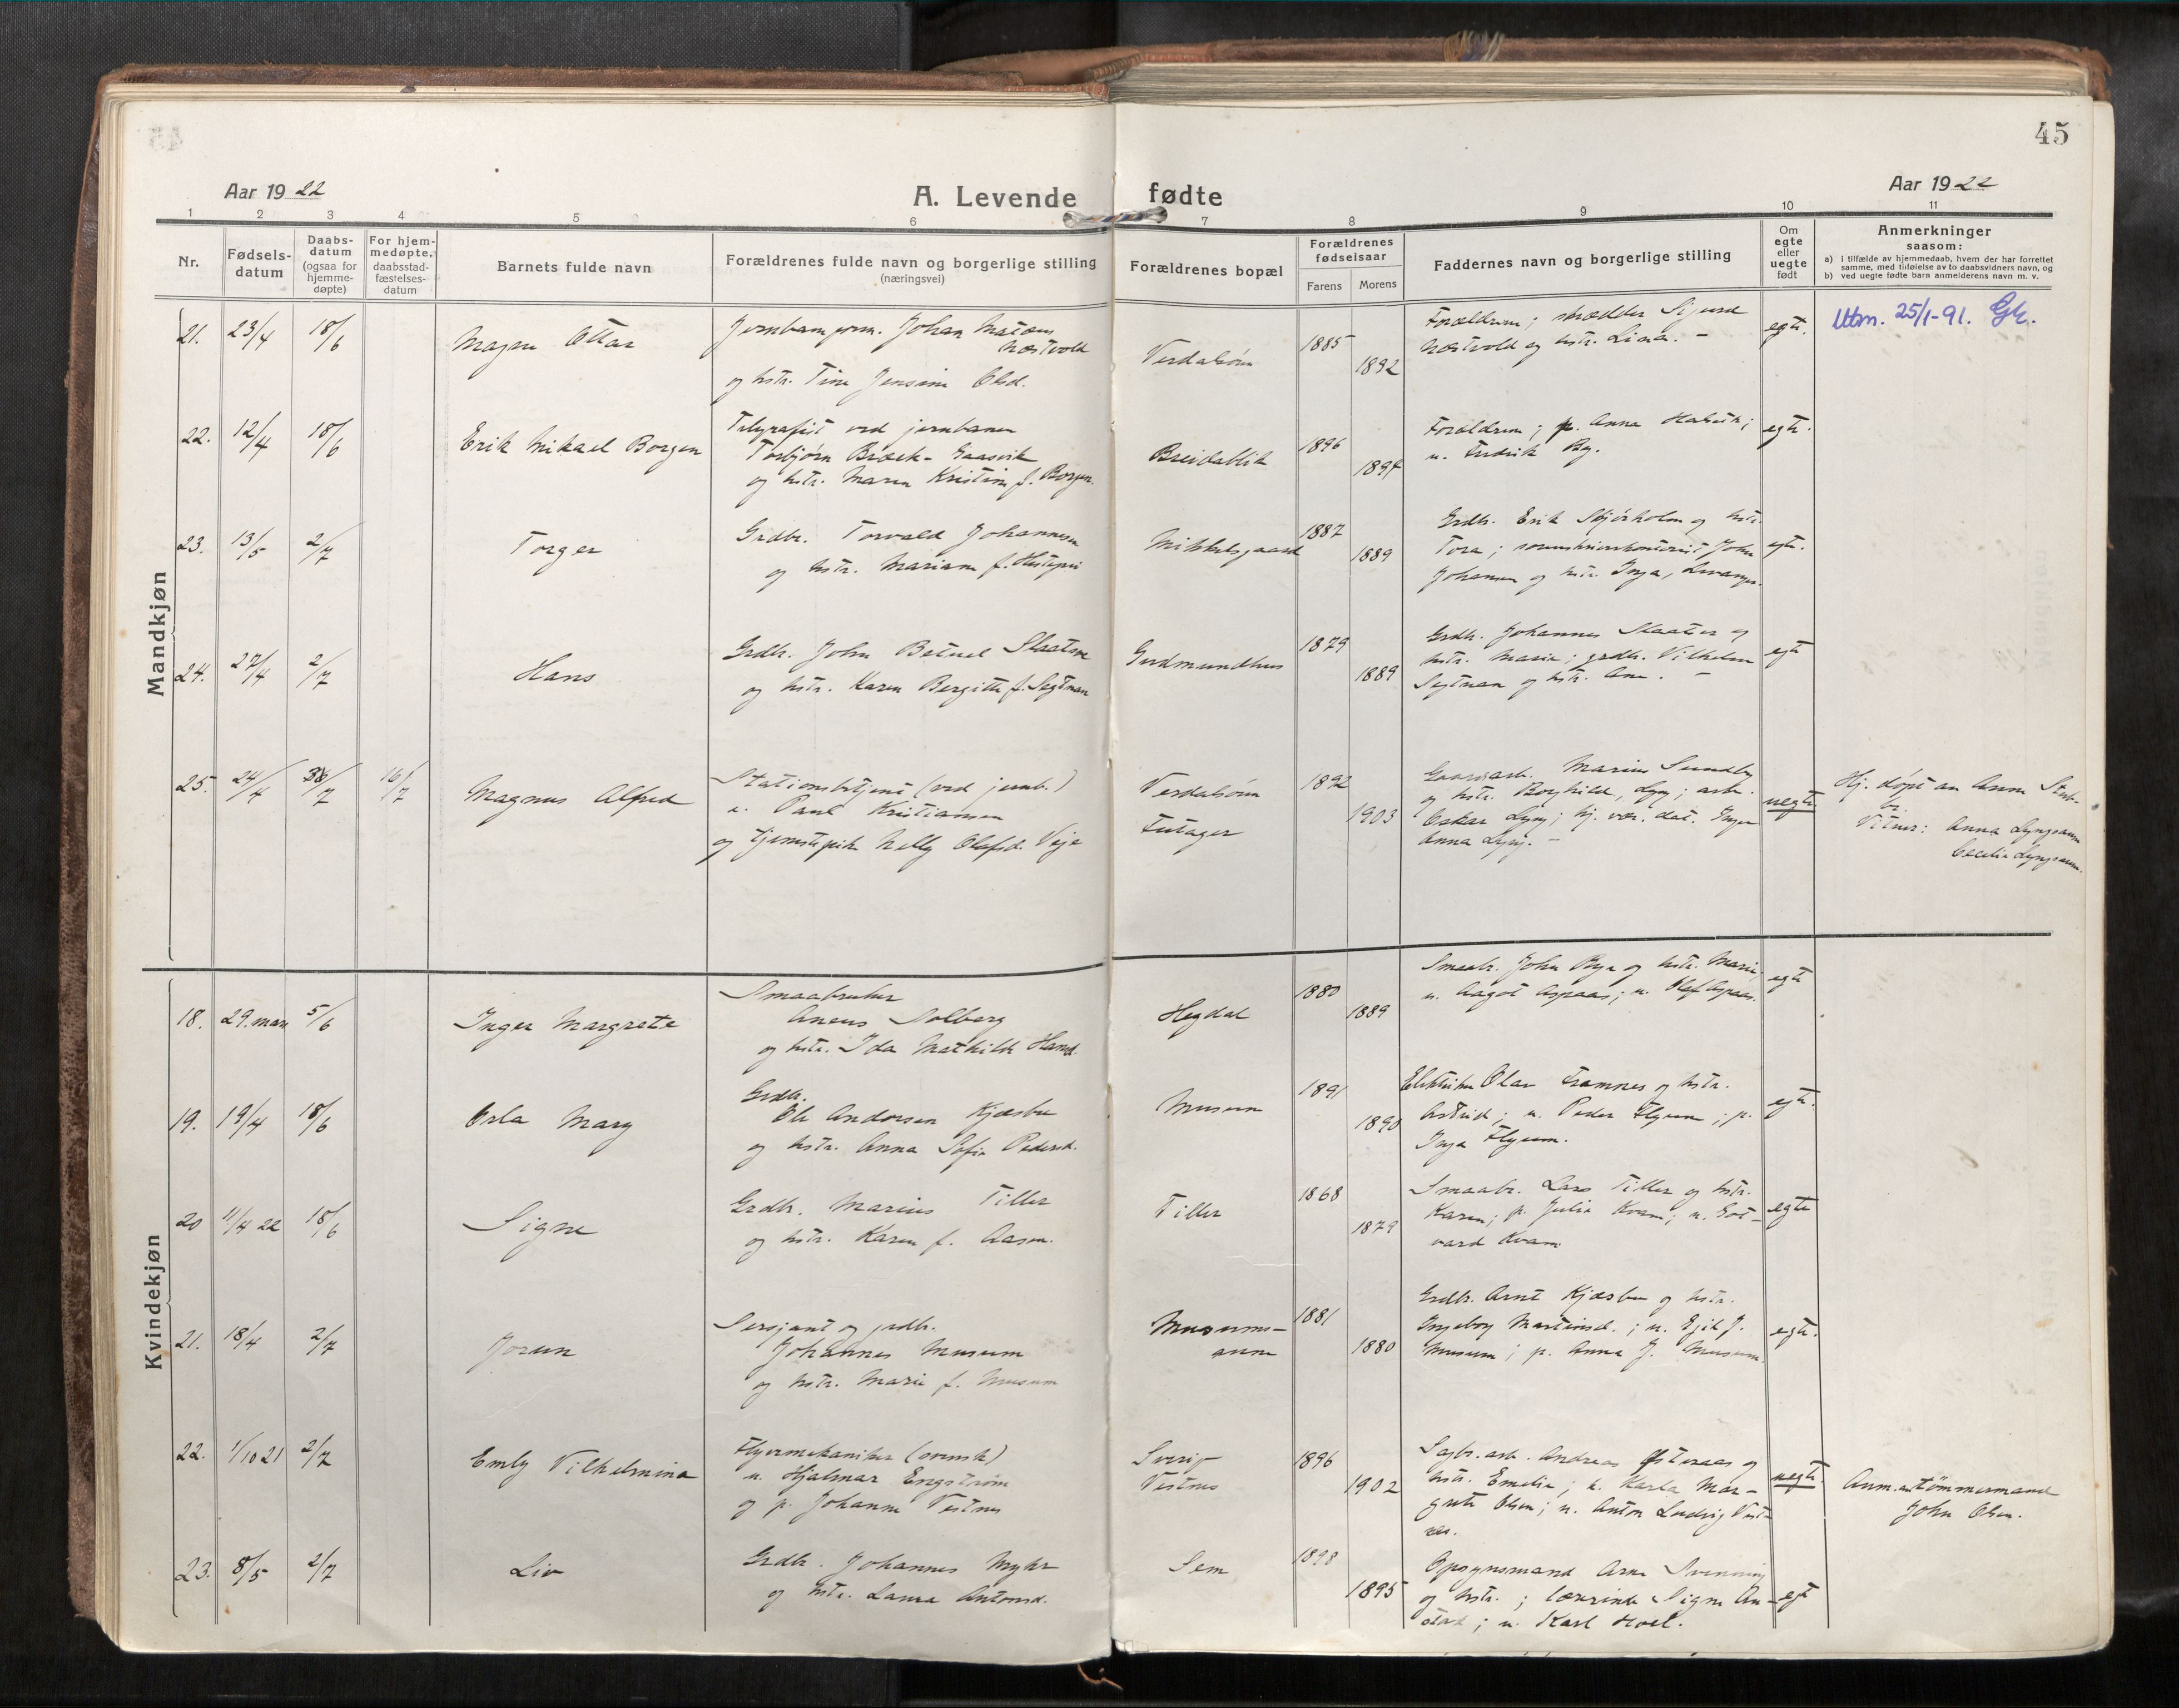 45
Aar 1922
A. Levende fødte
Aar 1922
1 2 3 4 5 6 7 8 9 10 11
Nr.
Fødsels-
datum
Daabs-
datum
(ogsaa for
hjemme-
døpte)
For hjem-
medøpte,
daabsstad-
fæstelses-
datum
Barnets fulde navn
Forældrenes fulde navn og borgerlige stilling
(næringsvei)
Forældrenes bopæl
Forældrenes
fødselsaar
Farens Morens
Faddernes navn og borgerlige stilling
Om
egte
eller
uegte
født
Anmerkninger
saasom:
a) i tilfælde av hjemmedaab, hvem der har forrettet
samme, med tilføielse av to daabsvidners navn, og
b) ved uegte fødte barn anmelderens navn m. v.
Mandkjøn
21. 23/4 18/6
Magne Ottar
Johan Matæus
Næstvold
og hstr. Tine Jensine Olsd.
Verdalsøra
1885
1892
Forældrene; skrædder Sigurd
Næstvold og hstr. Lina. –
egte.
Utm. 25/1-91.
22. 12/4 18/6
Erik Mikael Borgen
Telegrafist ved jernbanen
Torbjørn Bræck-Gaasvik
og hstr. Maren Kristine f. Borgen.
Breidablik
1896
1897
Forældrene; p. Anna
u. Fredrik By.
egte.
23. 13/5 2/7
Torger
Grdbr. Torvald Johannesen
og hstr. Mariane f.
Mikkelsgaard
1887
1889
Grdbr. Erik Skjørholm og hstr.
Tora; John
Johansen og hstr. Inga, Levanger.
egte.
24. 27/4 2/7
Hans
Grdbr. John Betuel Slaatsve
og hstr. Karen Bergitte f. Segtnan
Gudmundhus
1879
1889
Grdbr. Johannes Slaatsve og
hstr. Marie; grdbr. Vilhelm
Segtnan og hstr. Ane. –
egte
25. 24/4 /7 16/7
Magnus Alfred
Stationsbetjent (ved jernb.)
u. Paul Kristiansen
og tjenestepike Nelly Olafsd. Veje
Verdalsøra
Futager
1892
1903
Gaardsarb. Marius Sundby
og hstr. Borghild, Lyng; arb.
Oskar Lyng; hj. vær. dat. Inger
Anna Lyng. –
uegte.
Hj. døpt av Anna
Vitner: Anna Lyngsaunn
Cecilie Lyngsaunn.
Kvindekjøn
18. 29. mars 5/6
Inger Margrete
Smaabruker
Aneus Solberg
og hstr. Ida Mathilde Hansd.
Hegdal
1880
1889
Smaabr. John Bye og hstr. Marie,
u. Aagot Aspaas; u. Olaf Aspaas.
egte
19. 19/4 18/6
Orla Mary
Grdbr.
Ole Andersen Kjæsbu
og hstr. Anna Sofie Pedersd.
Musum
1891
1890
Elektriker Olav Framnes og hstr.
Astrid; u. Peder Flyum; p.
Inga Flyum.
egte.
20 11/4 22 18/6
Signe
Grdbr. Marius Tiller
og hstr. Karen f. Aasen.
Tiller
1868
1879
Smaabr. Lars Tiller og hstr.
Karen; p. Julie Kvam; u. Got-
vard Kvam
egte
21. 18/4 2/7
Jorun
Sersjant og grdbr.
Johannes Musum
og hstr. Marie f. Musum
Musums-
aunn
1881
1880
Grdbr. Arnt Kjæsbu og hstr.
Ingeborg Martinsd.; u. Egil J.
Musum; p. Anna J. Musum.
egte.
22. 1/10 21 2/7
Emly Vilhelmina
Flyvermekaniker (svensk)
u. Hjalmar Engström
og p. Johanne Vestnes
Sverig
Vestnes
1896
1902
Sagbr.arb. Andreas Østeraas og
hstr. Emelie; u. Karla Mar-
grete Olsen; u. Anton Ludvig Vest-
nes.
uegte.
Anm. av tömmermand
John Olsen.
23. 8/5 2/7
Liv
Grdbr. Johannes Myhr
og hstr. Laura Antonsd.
Sem
1898
1895
Opsynsmand Arne Svenning
og hstr.; lærerinde Signe An-
stad; u. Karl Hoel.
egt